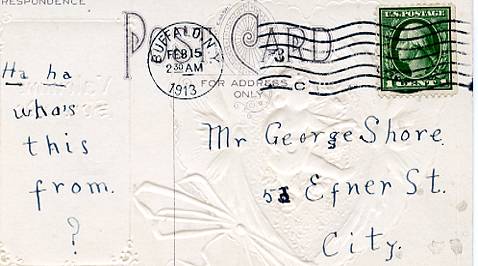 RESPONDENCE
POST CARD
BUFFALO, N.Y.
FEB 15
2 30 AM
1913
3
C
U.S. POSTAGE
1 CENT 1
FOR ADDRESS
ONLY
Ha ha
who's
this
from.
?
Mr George Shore.
51 Efner St.
City.